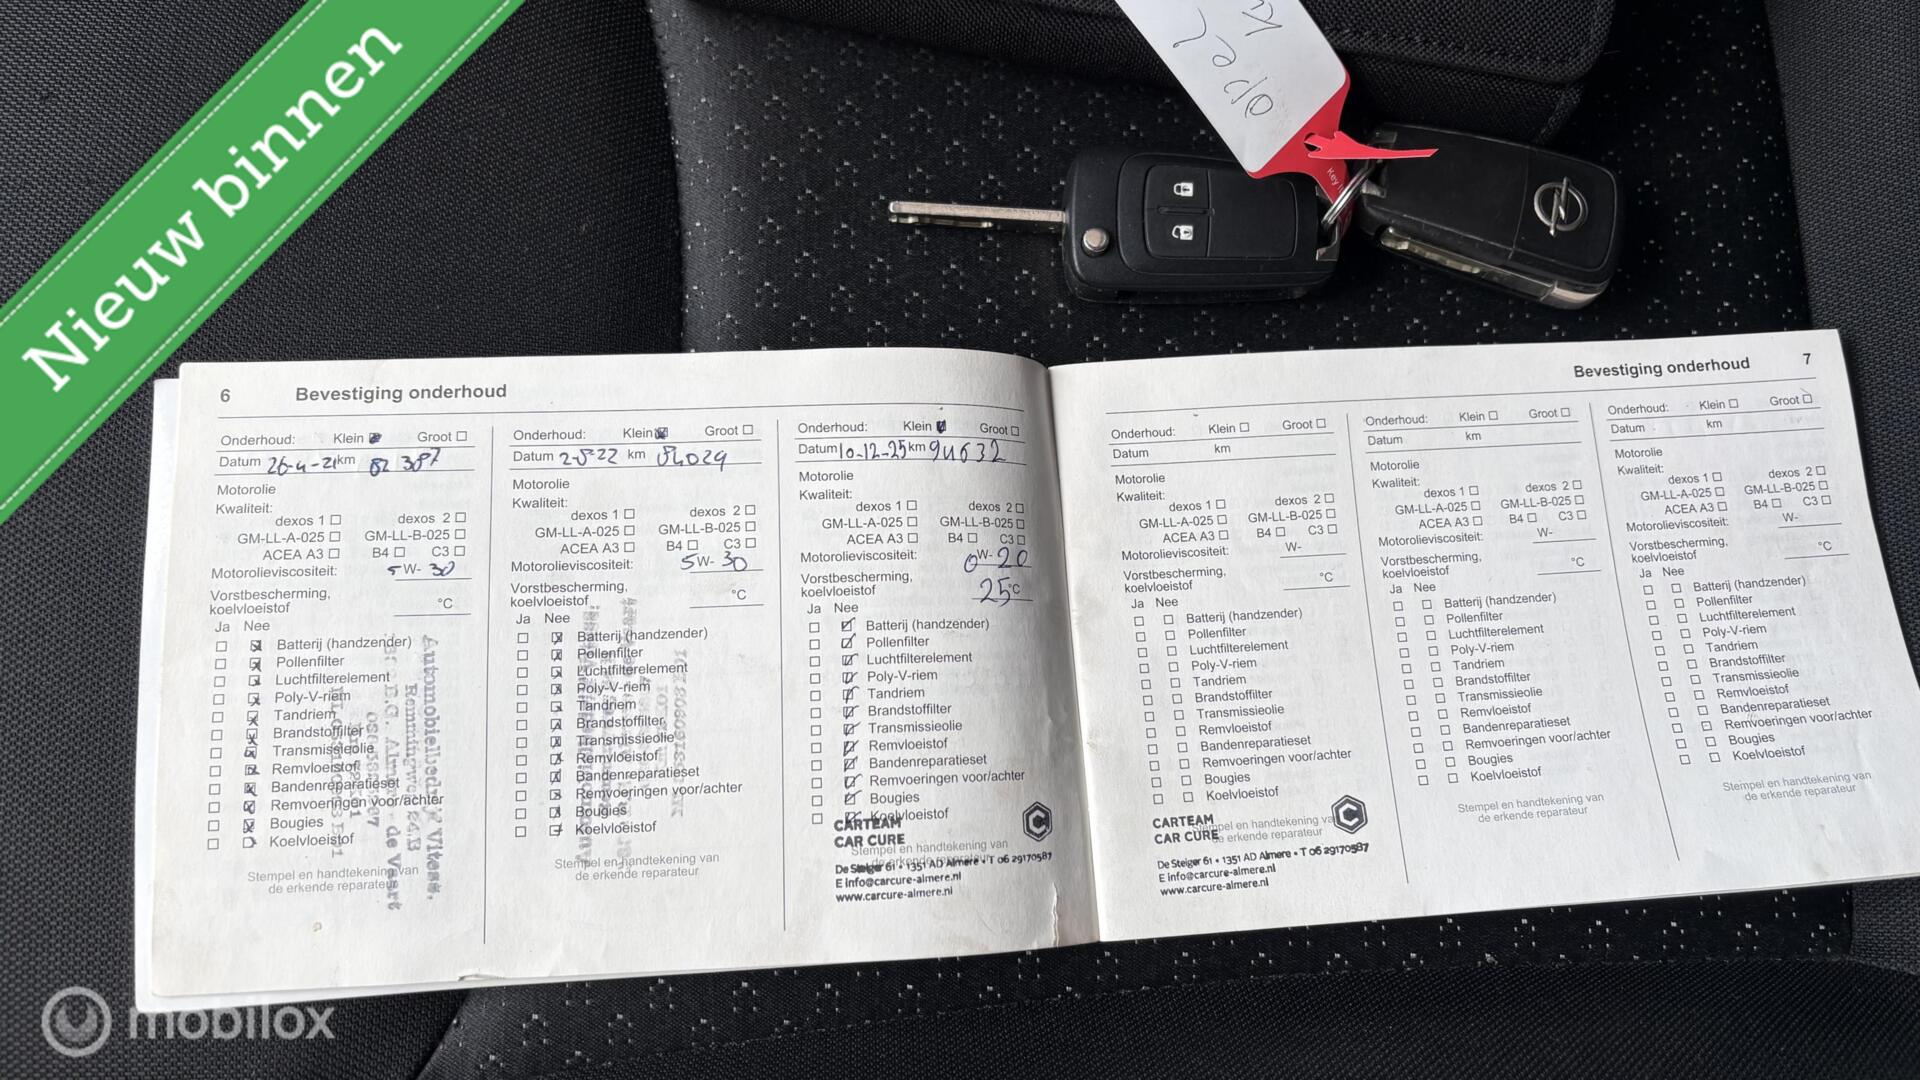 Nieuw binnen
opel
Key
6 Bevestiging onderhoud
Onderhoud: Klein Groot
Datum 26-4-21 km 82 387
Motorolie
Kwaliteit:
dexos 1 dexos 2
GM-LL-A-025 GM-LL-B-025
ACEA A3 B4 C3
Motorolieviscositeit: 5 W- 30
Vorstbescherming,
koelvloeistof °C
Ja Nee
Batterij (handzender)
Pollenfilter
Luchtfilterelement
Poly-V-riem
Tandriem
Brandstoffilter
Transmissieolie
Remvloeistof
Bandenreparatieset
Remvoeringen voor/achter
Bougies
Koelvloeistof
Stempel en handtekening van
de erkende reparateur
Automobielbedrijf Vitesse,
Onderhoud: Klein Groot
Datum 2-8-22 km 84029
Motorolie
Kwaliteit:
dexos 1 dexos 2
GM-LL-A-025 GM-LL-B-025
ACEA A3 B4 C3
Motorolieviscositeit: 5 W- 30
Vorstbescherming,
koelvloeistof °C
Ja Nee
Batterij (handzender)
Pollenfilter
Luchtfilterelement
Poly-V-riem
Tandriem
Brandstoffilter
Transmissieolie
Remvloeistof
Bandenreparatieset
Remvoeringen voor/achter
Bougies
Koelvloeistof
Stempel en handtekening van
de erkende reparateur
Onderhoud: Klein Groot
Datum 10-12-25 km 94632
Motorolie
Kwaliteit:
dexos 1 dexos 2
GM-LL-A-025 GM-LL-B-025
ACEA A3 B4 C3
Motorolieviscositeit: 0 W- 20
Vorstbescherming,
koelvloeistof 25 °C
Ja Nee
Batterij (handzender)
Pollenfilter
Luchtfilterelement
Poly-V-riem
Tandriem
Brandstoffilter
Transmissieolie
Remvloeistof
Bandenreparatieset
Remvoeringen voor/achter
Bougies
Koelvloeistof
CARTEAM
CAR CURE
Stempel en handtekening van
de erkende reparateur
De Steiger 61 • 1351 AD Almere • T 06 29170587
E info@carcure-almere.nl
www.carcure-almere.nl
Bevestiging onderhoud 7
Onderhoud: Klein Groot
Datum km
Motorolie
Kwaliteit:
dexos 1 dexos 2
GM-LL-A-025 GM-LL-B-025
ACEA A3 B4 C3
Motorolieviscositeit: W-
Vorstbescherming,
koelvloeistof °C
Ja Nee
Batterij (handzender)
Pollenfilter
Luchtfilterelement
Poly-V-riem
Tandriem
Brandstoffilter
Transmissieolie
Remvloeistof
Bandenreparatieset
Remvoeringen voor/achter
Bougies
Koelvloeistof
CARTEAM
CAR CURE
Stempel en handtekening van
de erkende reparateur
De Steiger 61 • 1351 AD Almere • T 06 29170587
E info@carcure-almere.nl
www.carcure-almere.nl
Onderhoud: Klein Groot
Datum km
Motorolie
Kwaliteit:
dexos 1 dexos 2
GM-LL-A-025 GM-LL-B-025
ACEA A3 B4 C3
Motorolieviscositeit: W-
Vorstbescherming,
koelvloeistof °C
Ja Nee
Batterij (handzender)
Pollenfilter
Luchtfilterelement
Poly-V-riem
Tandriem
Brandstoffilter
Transmissieolie
Remvloeistof
Bandenreparatieset
Remvoeringen voor/achter
Bougies
Koelvloeistof
Stempel en handtekening van
de erkende reparateur
Onderhoud: Klein Groot
Datum km
Motorolie
Kwaliteit:
dexos 1 dexos 2
GM-LL-A-025 GM-LL-B-025
ACEA A3 B4 C3
Motorolieviscositeit: W-
Vorstbescherming,
koelvloeistof °C
Ja Nee
Batterij (handzender)
Pollenfilter
Luchtfilterelement
Poly-V-riem
Tandriem
Brandstoffilter
Transmissieolie
Remvloeistof
Bandenreparatieset
Remvoeringen voor/achter
Bougies
Koelvloeistof
Stempel en handtekening van
de erkende reparateur
mobilox